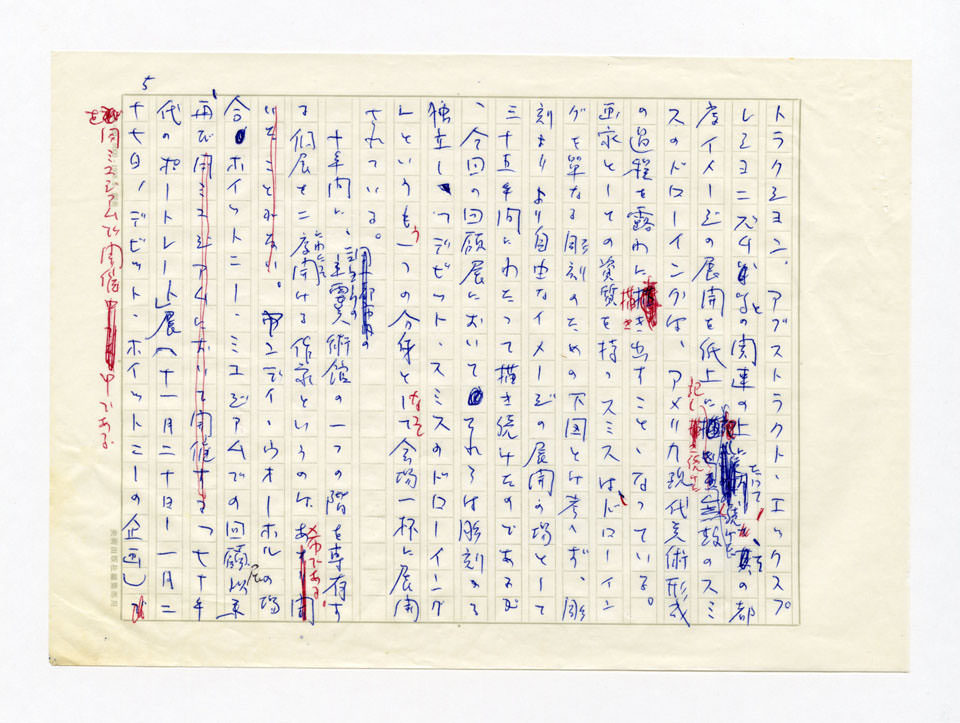 5
トラクション、アブストラクト・エックスプ
レショニズム等々との関連の上にたって、その都
度イメージの展開を紙上に記し続けた無数のスミ
スのドローイングは、アメリカ現代美術形成
の過程を露わに描き出すことゝなっている。
画家としての資質を持つスミスは、ドローイン
グを単なる彫刻のための下図とは考へず、彫
刻よりより自由なイメージの展開の場として
三十五年間にわたって描き続けたのであるが
、今回の回顧展においてそれらは彫刻から
独立し、デビット・スミスのドローイング
というもう一つの分身として会場一杯に展開
されている。
十年間に、ニューヨークの主要美術館の一つの階を専有す
る個展を二度にわたって開ける作家というのは、希である。
アンディ・ウオーホルの場
合、ホイットニー・ミュジアムでの回顧展以来
再び「七十年
代のポートレート」展(十一月二十日ー一月二
十七日、デビット・ホイットニーの企画)
を同ミュジアムで開催中である